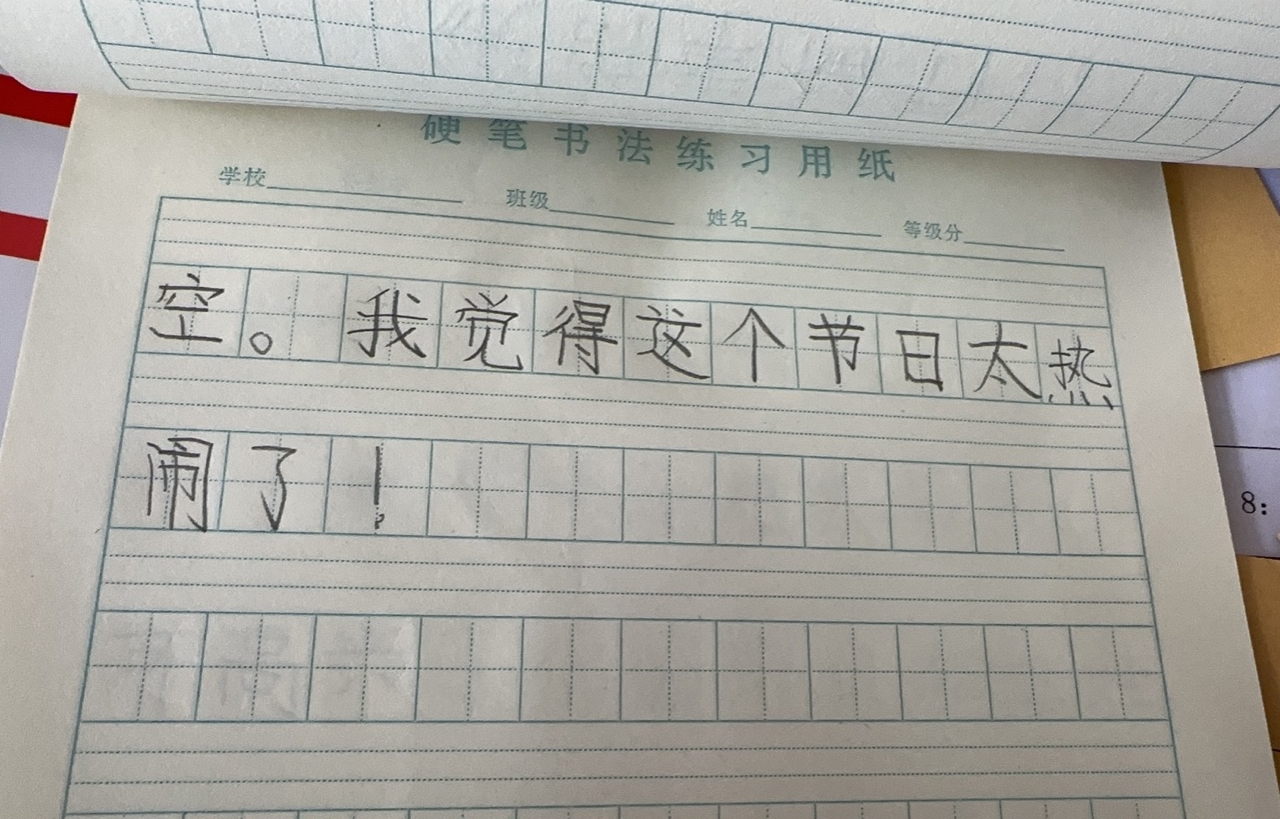 硬笔书法练习用纸
学校 班级 姓名 等级分
空。我觉得这个节日太热
闹了！
8: